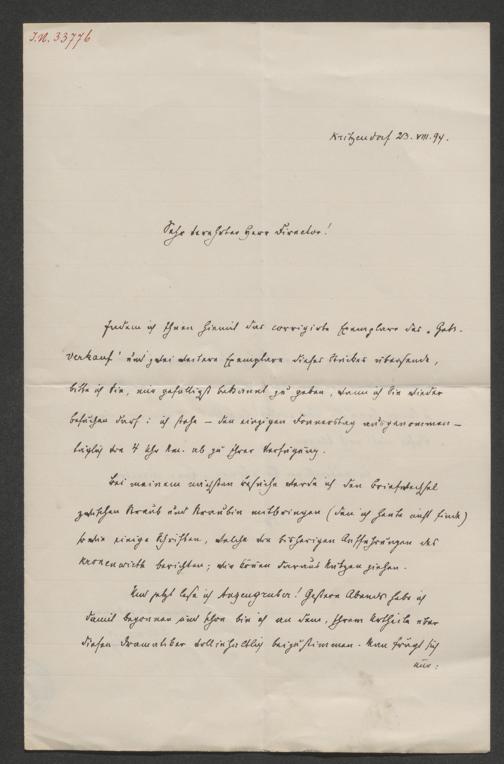 J.N. 33776
Kritzendorf 23. VIII. 94.
Sehr verehrter Herr Director!
Indem ich Ihnen hiemit das corrigirte Exemplare des „Guts-
verkauf" und zwei weitere Exemplare dieses Stückes übersende,
bitte ich Sie, mir gefälligst bekannt zu geben, wann ich Sie wieder
besuchen darf: ich stehe – den einzigen Donnerstag ausgenommen –
täglich von 4 Uhr Nm. ab zu Ihrer Verfügung.
Bei meinem nächsten Besuche werde ich den Briefwechsel
zwischen Straub und Straubin mitbringen (den ich heute nicht finde)
sowie einige Schriften, welche von bisherigen Aufführungen des
Kronenwirth berichten; wir können daraus Nutzen ziehen.
Und jetzt lese ich Anzengruber! Gestern Abends habe ich
damit begonnen und schon bin ich an dem, Ihrem Urtheile über
diesen Dramatiker vollinhaltlich beizustimmen. Man frägt sich
nur: